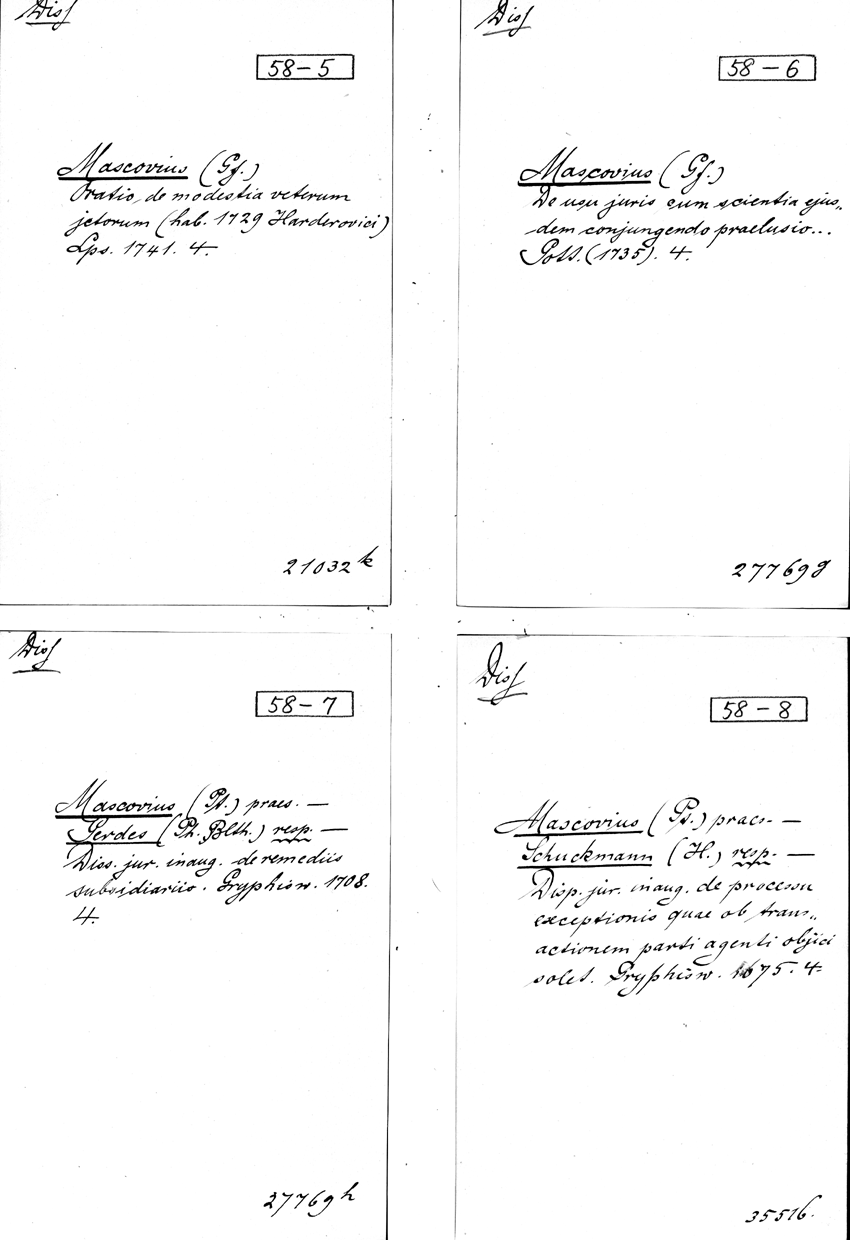 Diss
58-5
Mascovius (Gf.)
Oratio de modestia veterum
jctorum (hab. 1729 Harderovici)
Lps. 1741. 4.
21032 k
Diss
58-6
Mascovius (Gf.)
De usu juris cum scientia ejus„
dem conjungendo praelusio...
Gott. (1735). 4.
27769 g
Diss
58-7
Mascovius (Pt.) praes. —
Gerdes (Ph. Blth.) resp. —
Diss. jur. inaug. de remediis
subsidiariis. Gryphisw. 1708.
4.
27769 h
Diss
58-8
Mascovius (Pt.) praes. —
Schuckmann (H.) resp. —
Disp. jur. inaug. de processu
exceptionis quae ob trans„
actionem parti agenti objici
solet. Gryphisw. 1675. 4.
35516.